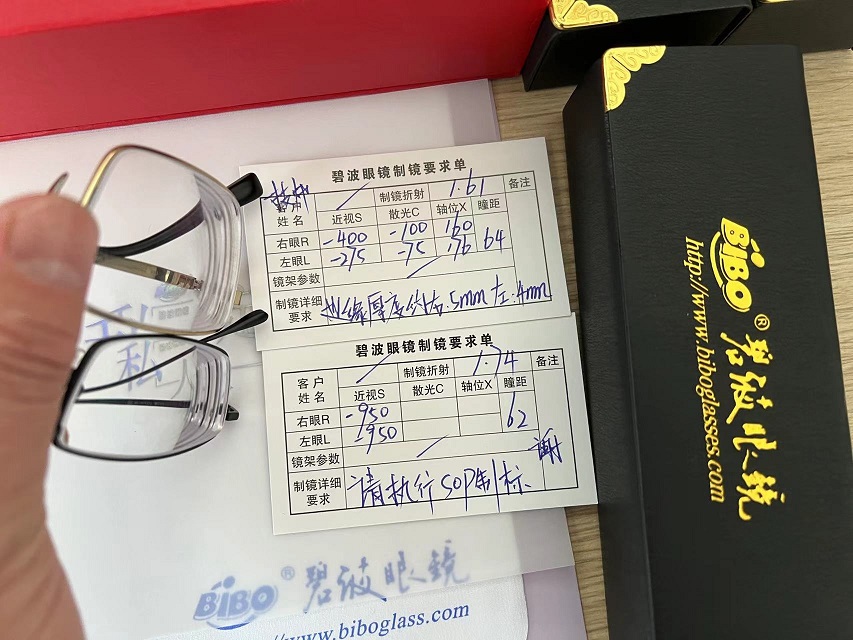 碧波眼镜制镜要求单
客户 姓名 制镜折射 1.61 备注
近视S 散光C 轴位X 瞳距
右眼R -400 -100 160 64
左眼L -275 -75 76
镜架参数
制镜详细要求 边缘厚度约右.5mm左.4mm
碧波眼镜制镜要求单
客户 姓名 制镜折射 1.74 备注
近视S 散光C 轴位X 瞳距
右眼R -950 62
左眼L -950
镜架参数
制镜详细要求 请执行SOP制标 谢
BiBO® 碧波眼镜
www.biboglass.com
BiBO® 碧波眼镜
http://www.biboglasses.com